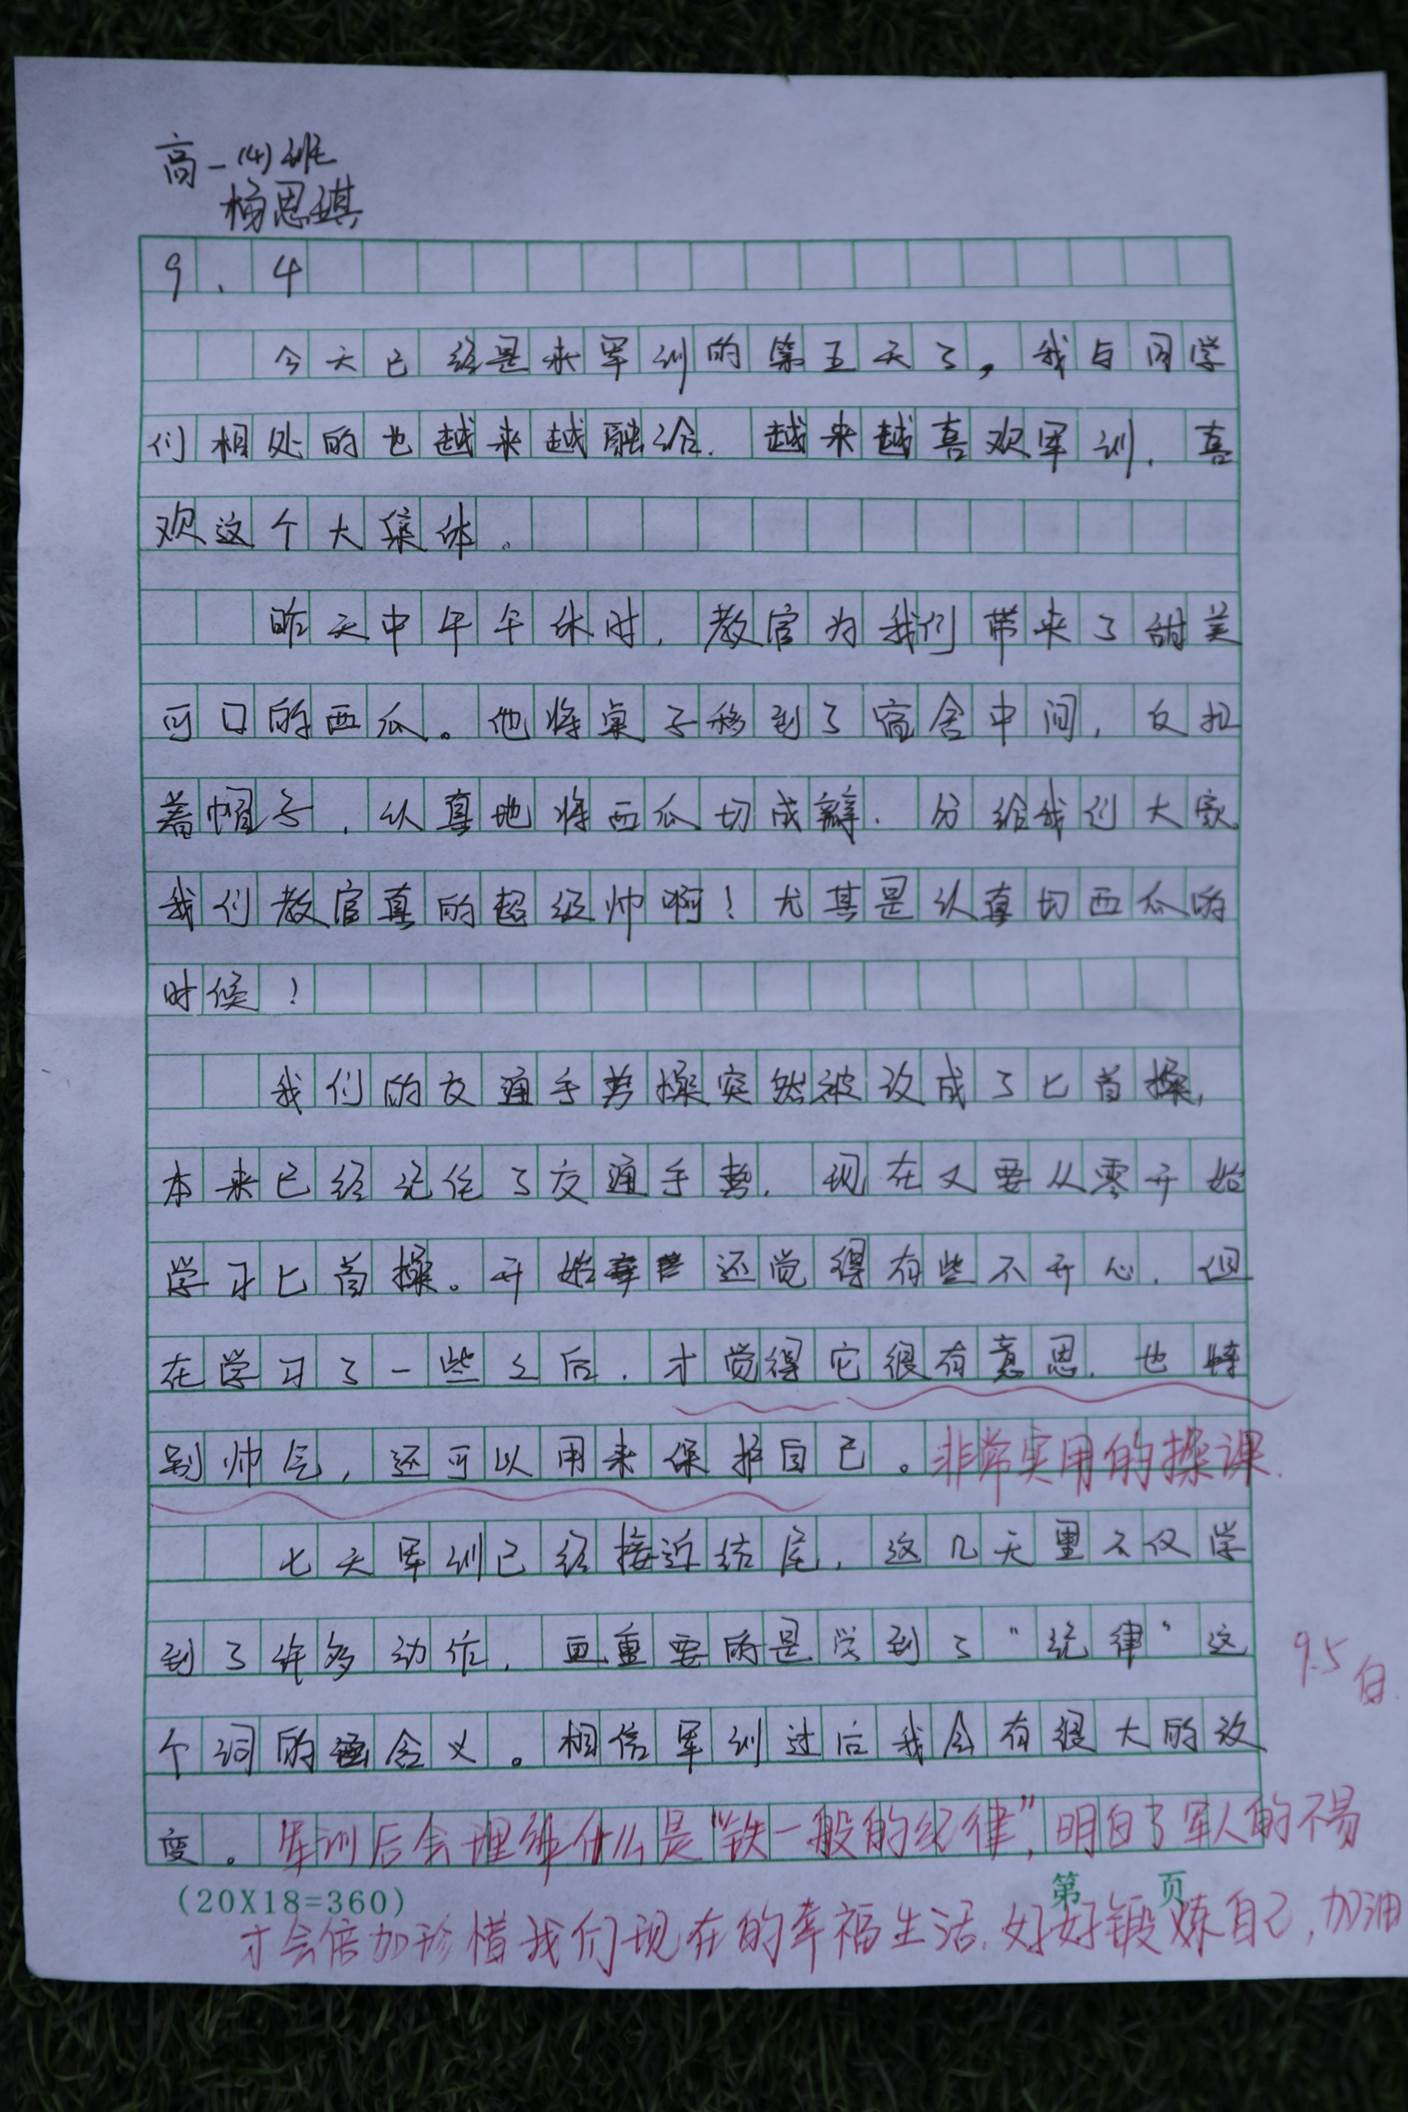 高一(4)班
杨思琪
9.4
今天已经是来军训的第五天了，我与同学
们相处的也越来越融洽，越来越喜欢军训，喜
欢这个大集体。
昨天中午午休时，教官为我们带来了甜美
可口的西瓜。他将桌子移到了宿舍中间，反扣
着帽子，认真地将西瓜切成瓣，分给我们大家。
我们教官真的超级帅啊！尤其是认真切西瓜的
时候！
我们的交通手势操突然被改成了匕首操，
本来已经记住了交通手势，现在又要从零开始
学习匕首操。开始还觉得有些不开心，但
在学习了一些之后，才觉得它很有意思，也特
别帅气，还可以用来保护自己。非常实用的操课.
七天军训已经接近结尾，这几天里不仅学
到了许多动作，更重要的是学到了“纪律”这
9.5
个词的含义。相信军训过后我会有很大的改
变。军训后会理解什么是“铁一般的纪律”，明白了军人的不易
(20X18=360) 第 页
才会倍加珍惜我们现在的幸福生活.好好锻炼自己,加油